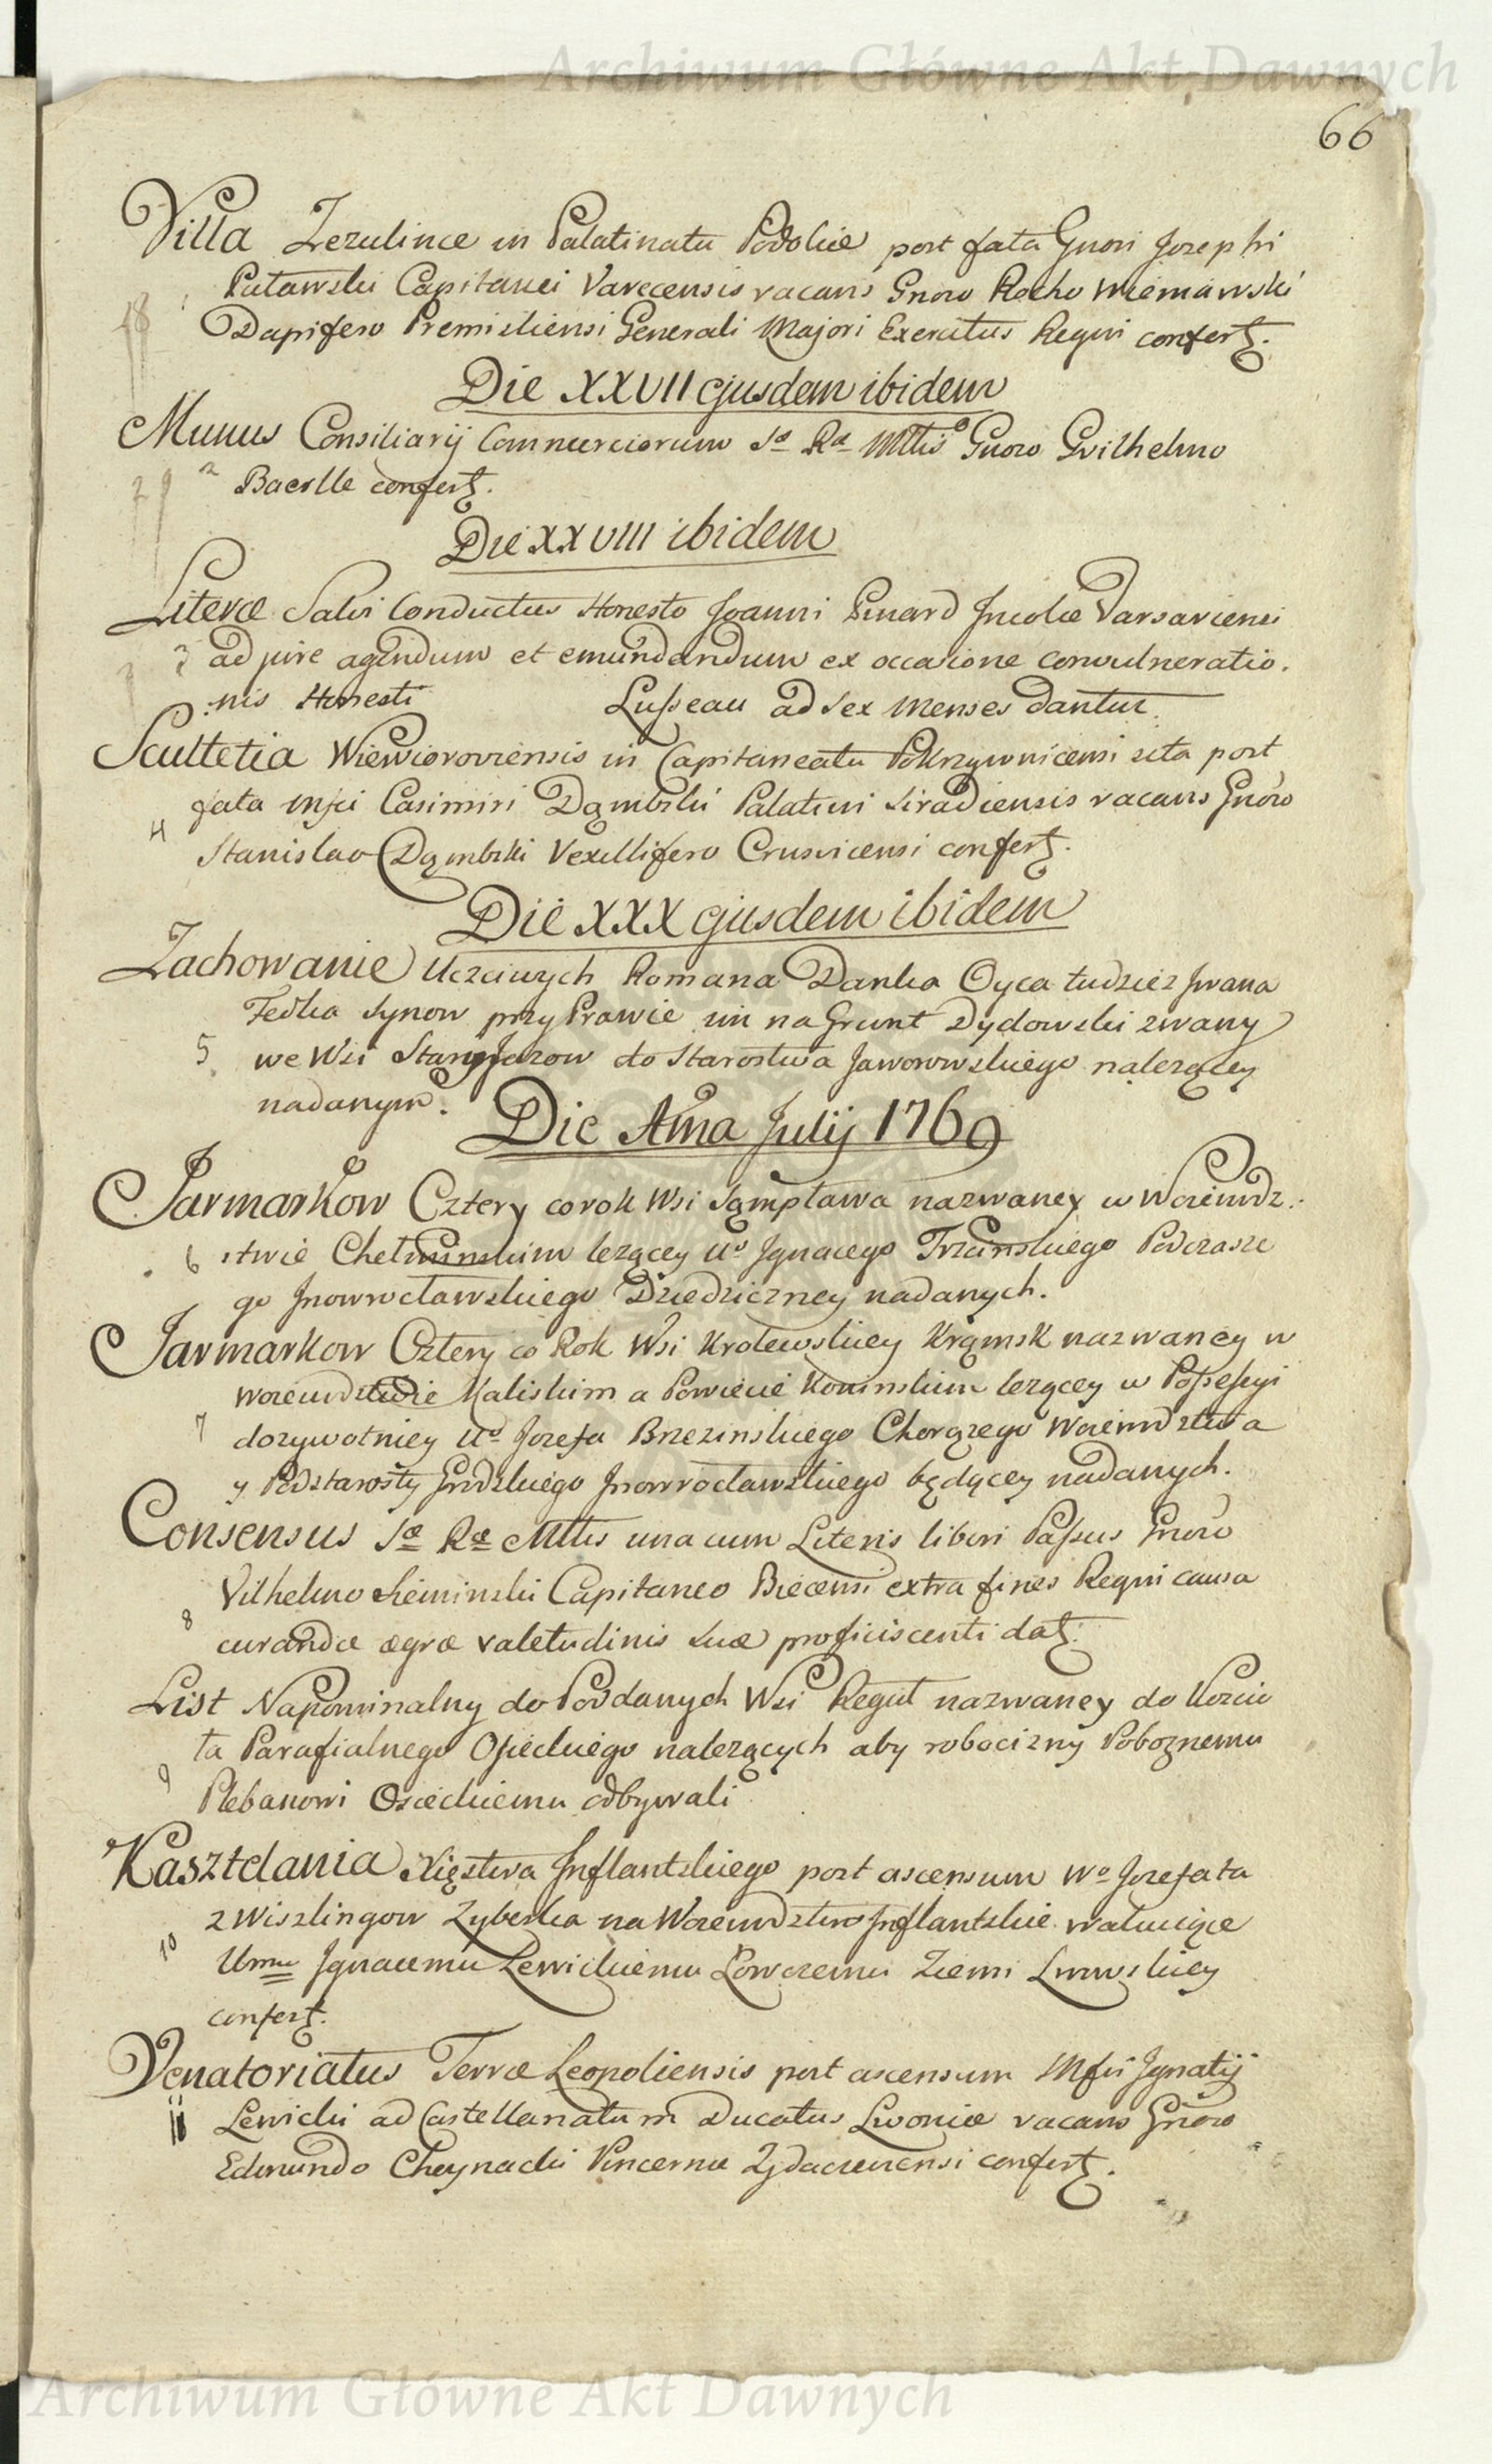 Archiwum Główne Akt Dawnych
66
Villa Zezulince in Palatinatu Podoliæ post fata Gnosi Josephi
Putawski Capitanei Varecensis vacans Gnoso Rocho Wieniawski
Dapifero Premisliensi Generali Majori Exercitus Regni confert.
Die XXVII ejusdem ibidem
Munus Consiliarij Commerciorum Sæ Ræ Mttis Gnoso Gvilhelmo
2 Baerlle confert.
Die XXVIII ibidem
Literæ Salvi Conductus Honesto Joanni Guard Jncolæ Varsaviensi
3 ad jure agendum et emundandum ex occasione convulneratio.
:nis Honesti Luſseau ad sex Menses dantur.
Scultetia Wiewioroviensis in Capitaneatu Pokrzywnicensi sita post
fata Mfci Casimiri Dąmbski Palatini Siradiensis vacans Gnoso
4 Stanislao Dąmbski Vexillifero Crusvicensi confert.
Die XXX ejusdem ibidem
Zachowanie Uczciwych Romana Danka Oyca tudziez Jwana
Fedka Synow przy Prawie im na Grunt Dydowski zwany
5 we Wsi Starzyska do Starostwa Jaworowskiego nalezącey
nadanym.
Die Ama Julij 1769
Jarmarkow Cztery co rok Wsi Sąmpława nazwaney w Woiewdz:
6 :twie Chełminskim lezącey Uo Jgnacego Trzcinskiego Podczasze
go Jnowrocławskiego Dziedziczney nadanych.
Jarmarkow Cztery co Rok Wsi Krolewskiey Krąmsk nazwaney w
Woiewdztwie Kaliskim a Powiecie Koninskim lezącey w Poſseſsyi
7 dozywotniey Uo Jozefa Brzezinskiego Chorązego Woiewdztwa
y Podstarosty Grodzkiego Jnowrocławskiego będącey nadanych.
Consensus Sæ Ræ Mttis una cum Literis liberi Paſsus Gnoso
Vilhelmo Sieminski Capitaneo Biecensi extra fines Regni causa
8 curandæ ægræ valetudinis suæ proficiscenti dat.
List Napominalny do Poddanych Wsi Regut nazwaney do Koscio
ła Parafialnego Osieckiego nalezących aby robocizny Poboznemu
9 Plebanowi Osieckiemu odbywali
Kasztelania Xięstwa Jnflantskiego post ascensum Wo Jozefata
z Wiszlingow Zyberka na Woiewdztwo Jnflantskie wakuiące
10 Urmu Jgnacemu Lewickiemu Łowczemu Ziemi Lwowskiey
confert.
Venatoriatus Terræ Leopoliensis post ascensum Mfci Jgnatij
11 Lewicki ad Castellanatum Ducatus Livoniæ vacans Gnoso
Edmundo Choynacki Pincernæ Zydaczewensi confert.
Archiwum Główne Akt Dawnych